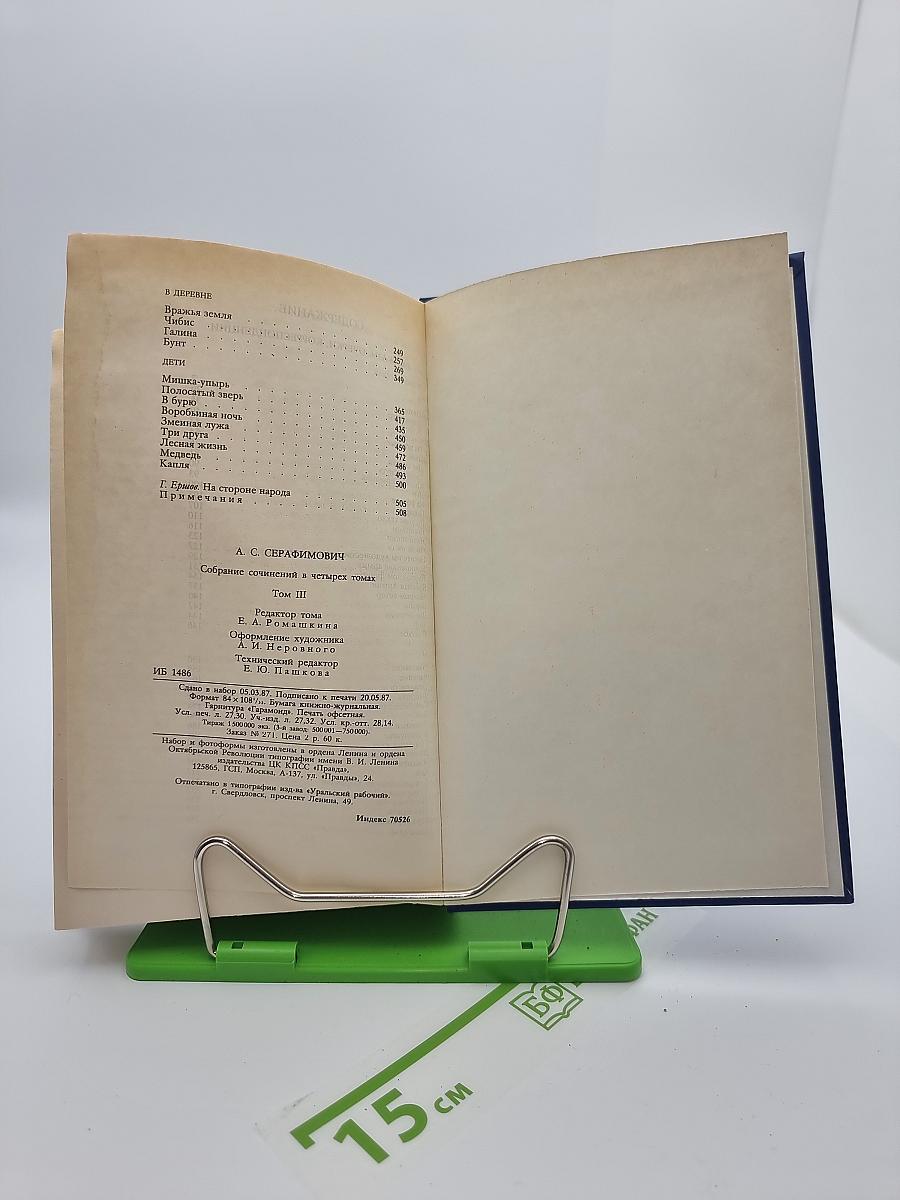 В ДЕРЕВНЕ
Вражья земля . . . 249
Чибис . . . 257
Галина . . . 269
Бунт . . . 349
ДЕТИ
Мишка-упырь . . . 365
Полосатый зверь . . . 417
В бурю . . . 435
Воробьиная ночь . . . 450
Змеиная лужа . . . 459
Три друга . . . 472
Лесная жизнь . . . 486
Медведь . . . 493
Капля . . . 500
Г. Ершов. На стороне народа . . . 505
Примечания . . . 508
А. С. СЕРАФИМОВИЧ
Собрание сочинений в четырех томах
Том III
Редактор тома
Е. А. Ромашкина
Оформление художника
А. И. Неровного
Технический редактор
Е. Ю. Пашкова
ИБ 1486
Сдано в набор 05.03.87. Подписано к печати 20.05.87.
Формат 84×108¹/₃₂. Бумага книжно-журнальная.
Гарнитура «Гарамонд». Печать офсетная.
Усл. печ. л. 27,30. Уч.-изд. л. 27,32. Усл. кр.-отт. 28,14.
Тираж 1 500 000 экз. (3-й завод: 500 001—750 000).
Заказ № 271. Цена 2 р. 60 к.
Набор и фотоформы изготовлены в ордена Ленина и ордена
Октябрьской Революции типографии имени В. И. Ленина
издательства ЦК КПСС «Правда».
125865, ГСП, Москва, А-137, ул. «Правды», 24.
Отпечатано в типографии изд-ва «Уральский рабочий».
г. Свердловск, проспект Ленина, 49.
Индекс 70526
БФ
15 см